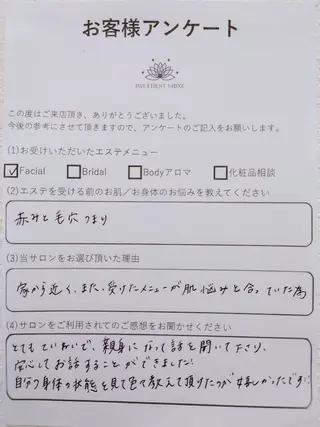 お客様アンケート
この度はご来店頂き、ありがとうございました。
今後の参考にさせて頂きますので、アンケートのご記入をお願いします。
(1)お受けいただいたエステメニュー
Facial Bridal Bodyアロマ 化粧品相談
(2)エステを受ける前のお肌/お身体のお悩みを教えてください
赤みと毛穴つまり
(3)当サロンをお選び頂いた理由
家から近く、また、受けたメニューが肌悩みと合っていた為
(4)サロンをご利用されてのご感想をお聞かせください
とてもていねいで、親身になって話を聞いて下さり、
安心してお話することができました!
自分の身体の状態を見て色々教えて頂けたのが嬉しかったです!